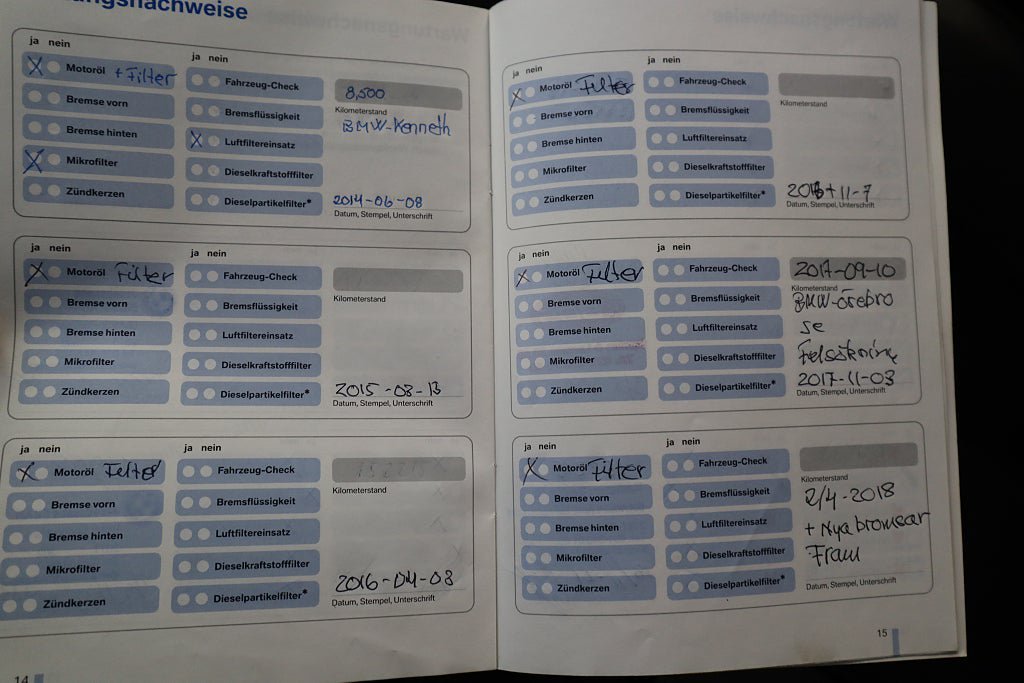 Wartungsnachweise
ja nein
Motoröl + Filter
Bremse vorn
Bremse hinten
Mikrofilter
Zündkerzen
ja nein
Fahrzeug-Check
Bremsflüssigkeit
Luftfiltereinsatz
Dieselkraftstofffilter
Dieselpartikelfilter*
8,500
Kilometerstand
BMW-Kenneth
2014-06-08
Datum, Stempel, Unterschrift
ja nein
Motoröl Filter
Bremse vorn
Bremse hinten
Mikrofilter
Zündkerzen
ja nein
Fahrzeug-Check
Bremsflüssigkeit
Luftfiltereinsatz
Dieselkraftstofffilter
Dieselpartikelfilter*
Kilometerstand
2015-03-13
Datum, Stempel, Unterschrift
ja nein
Motoröl Filter
Bremse vorn
Bremse hinten
Mikrofilter
Zündkerzen
ja nein
Fahrzeug-Check
Bremsflüssigkeit
Luftfiltereinsatz
Dieselkraftstofffilter
Dieselpartikelfilter*
Kilometerstand
2016-04-03
Datum, Stempel, Unterschrift
14
ja nein
Motoröl Filter
Bremse vorn
Bremse hinten
Mikrofilter
Zündkerzen
ja nein
Fahrzeug-Check
Bremsflüssigkeit
Luftfiltereinsatz
Dieselkraftstofffilter
Dieselpartikelfilter*
Kilometerstand
2016+11-7
Datum, Stempel, Unterschrift
ja nein
Motoröl Filter
Bremse vorn
Bremse hinten
Mikrofilter
Zündkerzen
ja nein
Fahrzeug-Check
Bremsflüssigkeit
Luftfiltereinsatz
Dieselkraftstofffilter
Dieselpartikelfilter*
2017-09-10
Kilometerstand
BMW-örebro
se
Felsökning
2017-11-03
Datum, Stempel, Unterschrift
ja nein
Motoröl Filter
Bremse vorn
Bremse hinten
Mikrofilter
Zündkerzen
ja nein
Fahrzeug-Check
Bremsflüssigkeit
Luftfiltereinsatz
Dieselkraftstofffilter
Dieselpartikelfilter*
Kilometerstand
2/4-2018
+ Nya bromsar
Fram
Datum, Stempel, Unterschrift
15